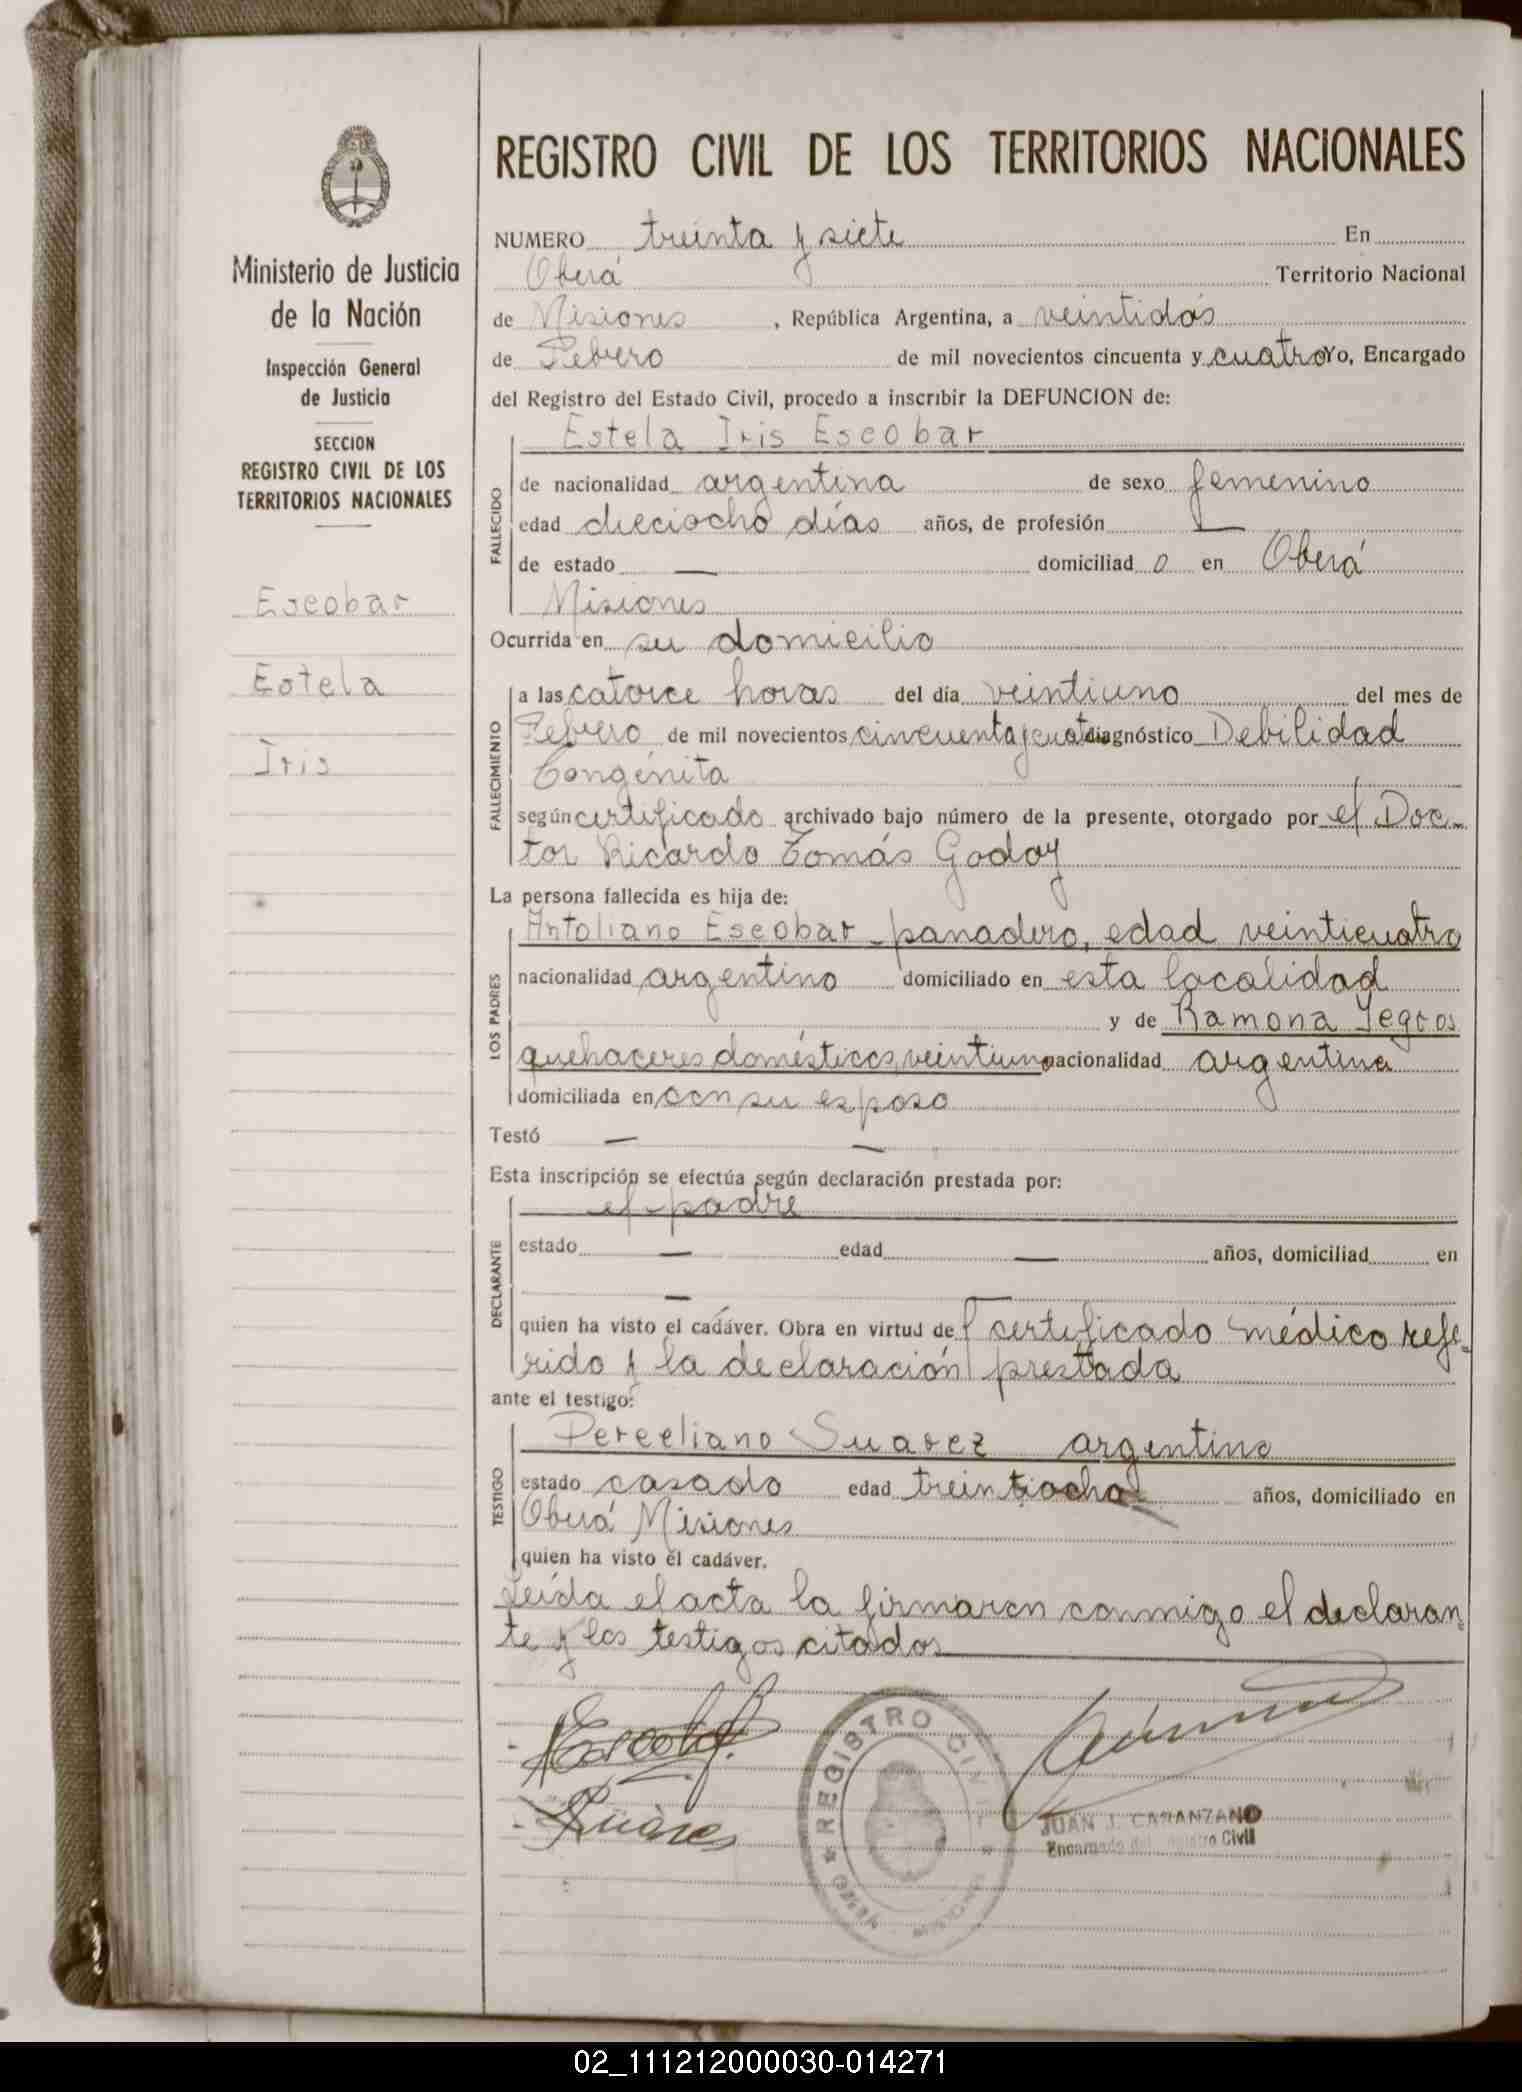 Ministerio de Justicia
de la Nación
Inspección General
de Justicia
SECCION
REGISTRO CIVIL DE LOS
TERRITORIOS NACIONALES
Escobar
Estela
Iris
REGISTRO CIVIL DE LOS TERRITORIOS NACIONALES
NUMERO treinta y siete En
Oberá Territorio Nacional
de Misiones , República Argentina, a veintidós
de Febrero de mil novecientos cincuenta y cuatro Yo, Encargado
del Registro del Estado Civil, procedo a inscribir la DEFUNCION de:
FALLECIDO
Estela Iris Escobar
de nacionalidad argentina de sexo femenino
edad dieciocho días años, de profesión —
de estado — domiciliad o en Oberá
Misiones
Ocurrida en su domicilio
FALLECIMIENTO
a las catorce horas del día veintiuno del mes de
Febrero de mil novecientos cincuenta y cuatro diagnóstico Debilidad
Congénita
según certificado archivado bajo número de la presente, otorgado por el Doc-
tor Ricardo Tomás Godoy
La persona fallecida es hija de:
LOS PADRES
Antoliano Escobar - panadero, edad veinticuatro
nacionalidad argentino domiciliado en esta localidad
y de Ramona Yegros
quehaceres domésticos, veintiuno nacionalidad argentina
domiciliada en con su esposo
Testó — —
Esta inscripción se efectúa según declaración prestada por:
DECLARANTE
el padre
estado — edad — años, domiciliad en
—
quien ha visto el cadáver. Obra en virtud del certificado médico refe-
rido y la declaración prestada
ante el testigo:
TESTIGO
Perceliano Suarez argentino
estado casado edad treintiocho años, domiciliado en
Oberá Misiones
quien ha visto el cadáver.
Leída el acta la firmaron conmigo el declaran-
te y los testigos citados
Escobar
Suàres
REGISTRO CIVIL
OBERA - MISIONES
JUAN J. CARANZANO
Encargado del Registro Civil
02_111212000030-014271